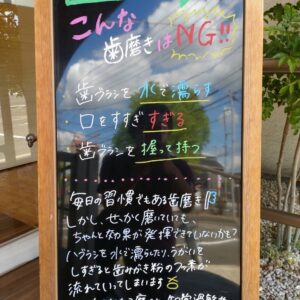 こんな
歯磨きはNG!!
・歯ブラシを水で濡らす
・口をすすぎすぎる
・歯ブラシを握って持つ
毎日の習慣でもある歯磨き
しかし、せっかく磨いていても、
ちゃんと効果が発揮できてないかも?
ハブラシを水で濡らしたり、うがいを
しすぎると歯みがき粉のフッ素が
流れていってしまいます